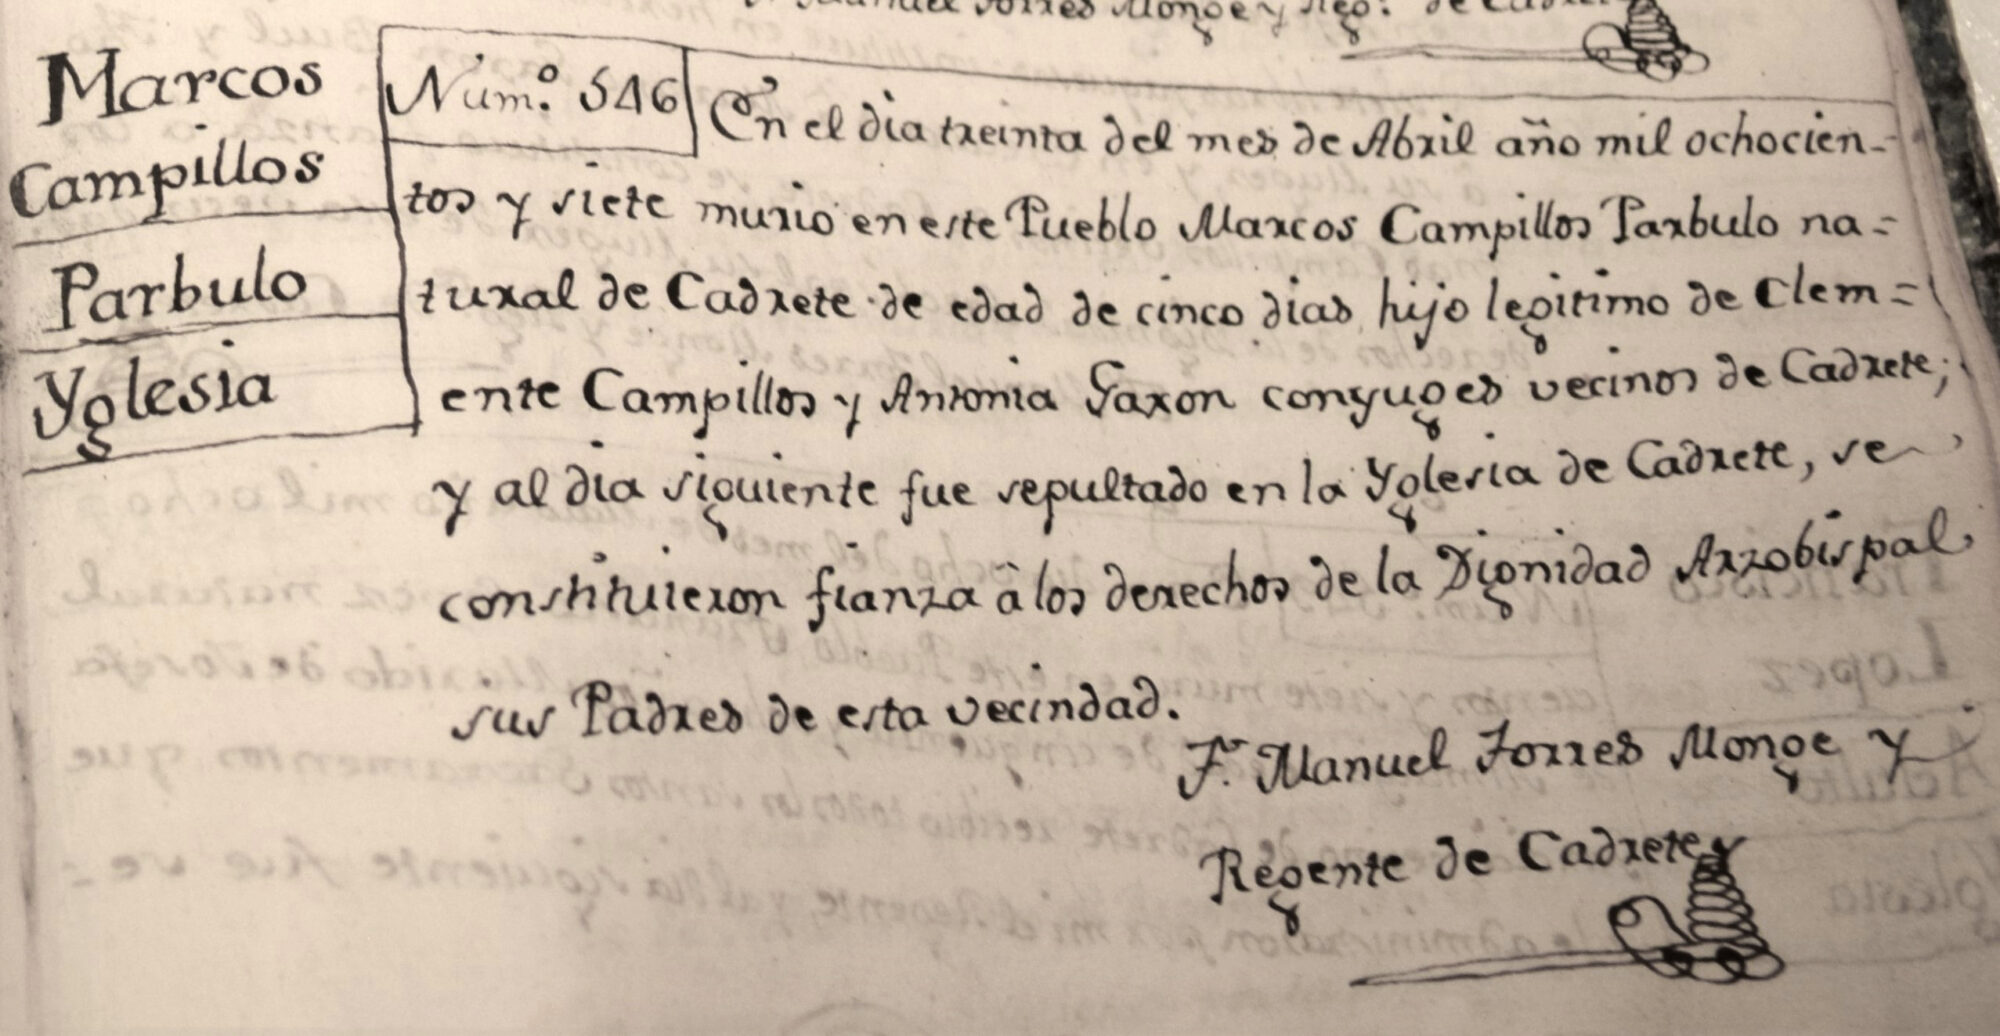 Manuel Torres Monge y Reg.
Marcos
Campillos
Parbulo
Yglesia
Num.º 546
En el dia treinta del mes de Abril año mil ochocien-
tos y siete murio en este Pueblo Marcos Campillos Parbulo na=
tural de Cadrete de edad de cinco dias hijo legitimo de Clem=
ente Campillos y Antonia Gaxon conyuges vecinos de Cadrete;
y al dia siguiente fue sepultado en la Yglesia de Cadrete, se
constituieron fianza à los derechos de la Dignidad Arzobispal
sus Padres de esta vecindad.
Fr. Manuel Torres Monge y
Regente de Cadrete